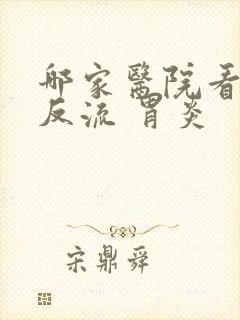 邮家醫院看
反流 胃炎
宋鼎舜